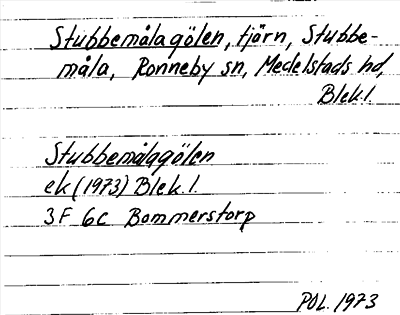 Stubbemålagölen, tjärn, Stubbe-
måla, Ronneby sn, Medelstads hd,
Blek.l.
Stubbemålagölen
ek (1973) Blek. l.
3F 6c Bommerstorp
POL. 1973